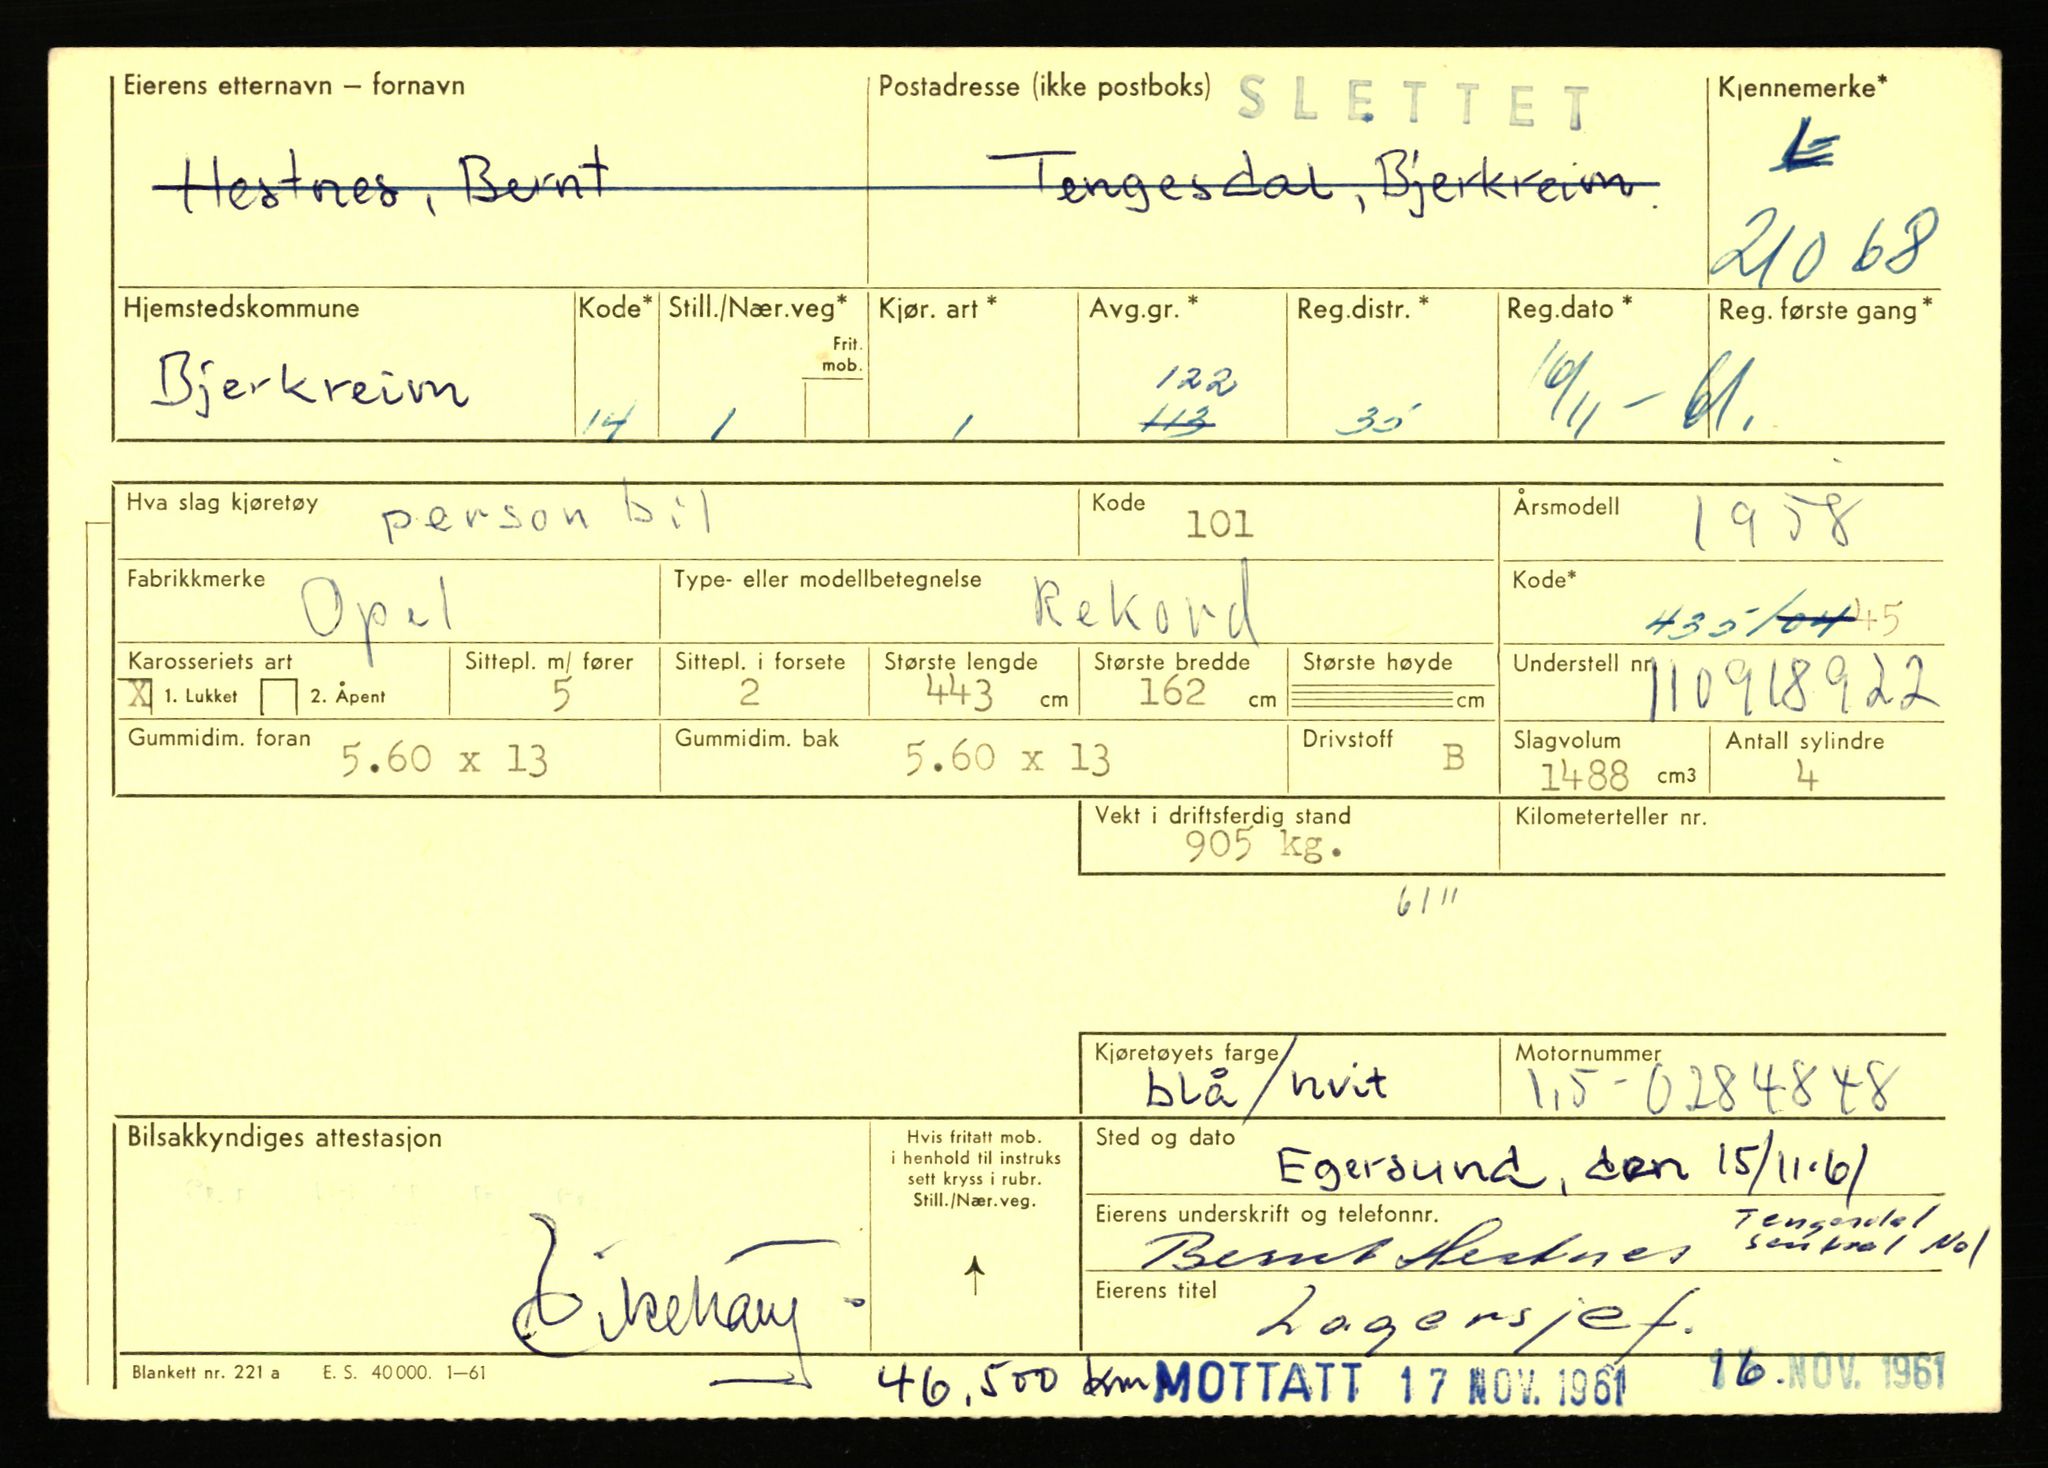 Eierens etternavn – fornavn Postadresse (ikke postboks) SLETTET Kjennemerke*
Hestnes, Bernt Tengesdal, Bjerkreim.
21068
Hjemstedskommune Kode* Still./Nær.veg* Kjør. art * Avg.gr. * Reg.distr. * Reg.dato * Reg. første gang *
Frit. mob.
122
Bjerkreim 14 1 1 113 35 16/11 – 61.
Hva slag kjøretøy person bil Kode 101 Årsmodell 1958
Fabrikkmerke Opel Type- eller modellbetegnelse Rekord Kode* 435/04 45
Karosseriets art Sittepl. m/ fører Sittepl. i forsete Største lengde Største bredde Største høyde Understell nr.
X 1. Lukket 2. Åpent 5 2 443 cm 162 cm cm 110918922
Gummidim. foran 5.60 x 13 Gummidim. bak 5.60 x 13 Drivstoff B Slagvolum 1488 cm3 Antall sylindre 4
Vekt i driftsferdig stand Kilometerteller nr.
905 kg.
61"
Kjøretøyets farge Motornummer
blå/hvit 1,5-0284848
Bilsakkyndiges attestasjon
Hvis fritatt mob.
i henhold til instruks
sett kryss i rubr.
Still./Nær.veg.
Sted og dato
Egersund, den 15/11-61
Eierens underskrift og telefonnr. Tengesdal
Bernt Hestnes sentral No1
Eierens titel
Lagersjef.
Blankett nr. 221 a E. S. 40 000. 1–61 46.500 km MOTTATT 17 NOV. 1961 16. NOV. 1961